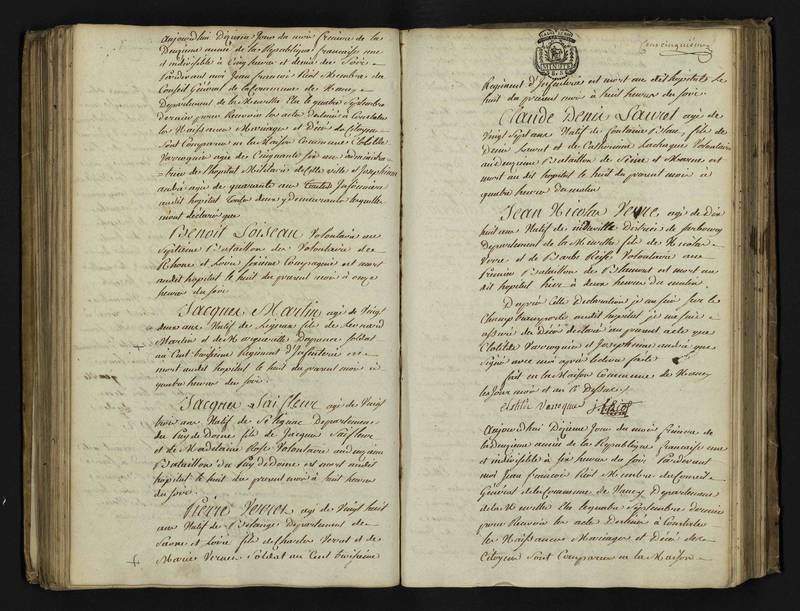 Aujourd'hui dixieme Jour du mois frimaire de la
Deuxieme année de la Republique francaise une
et indivisible à Cinq heures et demie du Soir
Pardevant moi Jean francois Membre du
Conseil Général de la Commune de Nancy
Departement de la Meurthe Elu le quatre Septembre
dernier pour Recevoir les actes destinés à Constater
les Naissances Mariages et Décès des Citoyens
Sont Comparus en la Maison Commune Clotilde
Varroquier agée de Cinquante ans administra
trice de l'hopital Militaire de Cette ville et Josephine
andré agée de quarante ans
audit hopital toutes deux y demeurantes lesquelles
mont déclaré que
Benoit Loiseau Volontaire au
Septieme Bataillon des Volontaires de
Rhone et Loire Compagnie est mort
audit hopital le huit du present mois à onze
heures du Soir
Jacques Martin agé de Vingt
deux ans Natif de fils de Leonard
Martin et de Marguerite Soldat
au Cent treizieme Regiment d'Infanterie est
mort audit hopital le huit du present mois à
quatre heures du Soir
Jacques Saifleur agé de Vingt
trois ans Natif de Departement
du Puy de Dome fils de Jacques Saifleur
et de Madelaine Volontaire au
Bataillon du Puy de Dome est mort audit
hopital le huit du present mois à huit heures
du Soir
Pierre agé de Vingt huit
ans Natif de Departement de
Saone et Loire fils de Charles et de
Marie Soldat au Cent treizieme
Regiment d'Infanterie est mort audit hopital le
huit du present mois à huit heures du Soir
Claude Denis Louvot agé de
Vingt Sept ans Natif de fontaine fils de
Denis Louvot et de Catherine Volontaire
au deuxieme Bataillon de Seine et Marne est
mort audit hopital le huit du present mois à
quatre heures du matin
Jean Nicolas Verre, agé de Dix
huit ans Natif de District de Sarbourg
Departement de la Meurthe fils de Nicolas
Verre et de Barbe Volontaire au
premier Bataillon de est mort au
dit hopital hier à deux heures du matin
D'après Cette Déclaration je me suis
audit hopital je me suis
assuré du Décès déclaré au present acte que
Clotilde Varroquier et Josephine andré que
Signé avec moi après lecture faite
fait en la Maison Commune de Nancy
les Jour mois et an
Clotilde Varroquier
Aujourd'hui Dixieme Jour du mois frimaire de
la Deuxieme année de la Republique francaise une
et indivisible à Six heures du Soir Pardevant
moi Jean francois Membre du Conseil
Général de la Commune de Nancy Departement
de la Meurthe Elu le quatre Septembre dernier
pour Recevoir les actes Destinés à Constater
les Naissances Mariages et Décès des
Citoyens Sont Comparus en la Maison